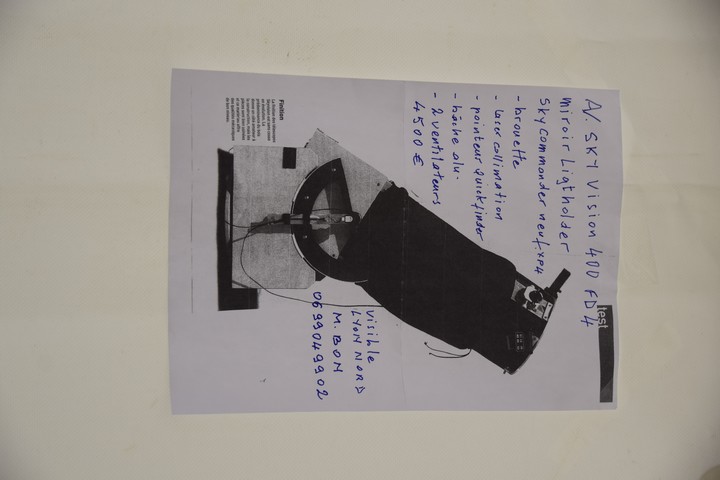 test
A/ SKY VISION 400 FD4
Miroir Ligtholder
Sky Commander neuf. XP4
- brouette
- laser collimation
- pointeur Quickfinder
- bâche alu.
- 2 ventilateurs
4500 €
visible
LYON NORD
M. BON
0699049902
Finition